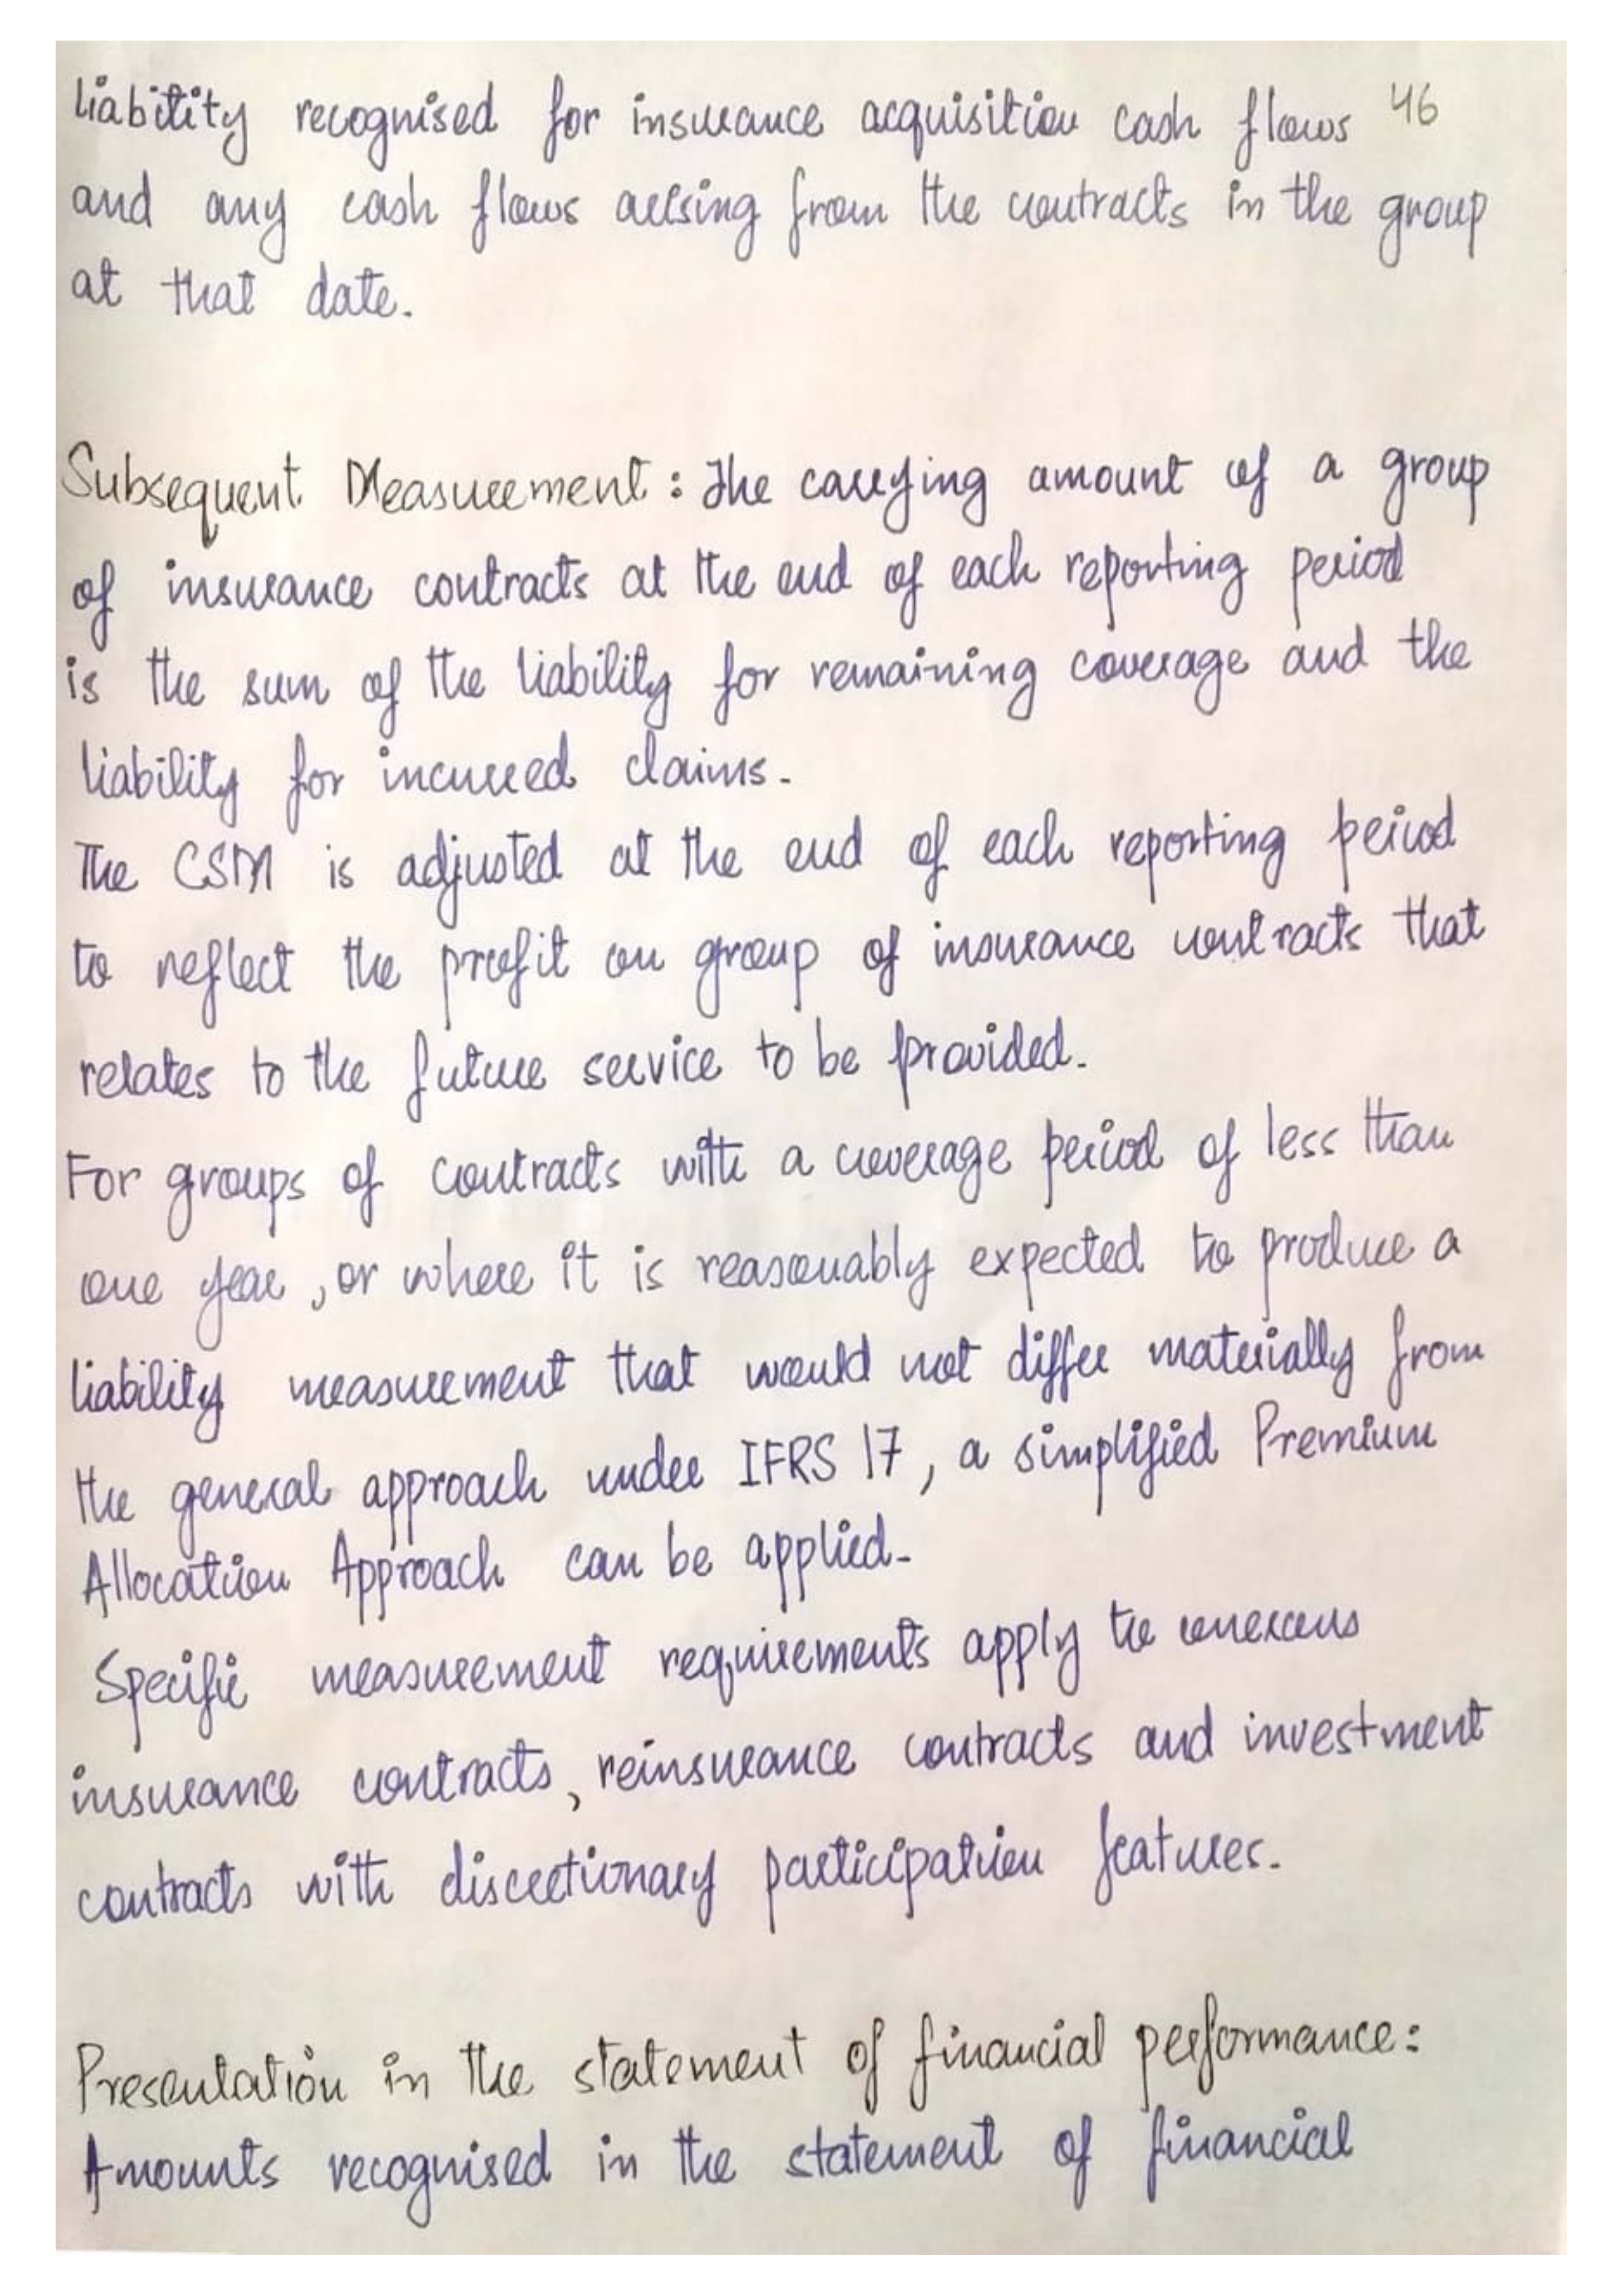 liability recognised for insurance acquisition cash flows 46
and any cash flows arising from the contracts in the group
at that date.
Subsequent Measurement : The carrying amount of a group
of insurance contracts at the end of each reporting period
is the sum of the liability for remaining coverage and the
liability for incurred claims.
The CSM is adjusted at the end of each reporting period
to reflect the profit on group of insurance contracts that
relates to the future service to be provided.
For groups of contracts with a coverage period of less than
one year, or where it is reasonably expected to produce a
liability measurement that would not differ materially from
the general approach under IFRS 17, a simplified Premium
Allocation Approach can be applied.
Specific measurement requirements apply to onerous
insurance contracts, reinsurance contracts and investment
contracts with discretionary participation features.
Presentation in the statement of financial performance:
Amounts recognised in the statement of financial